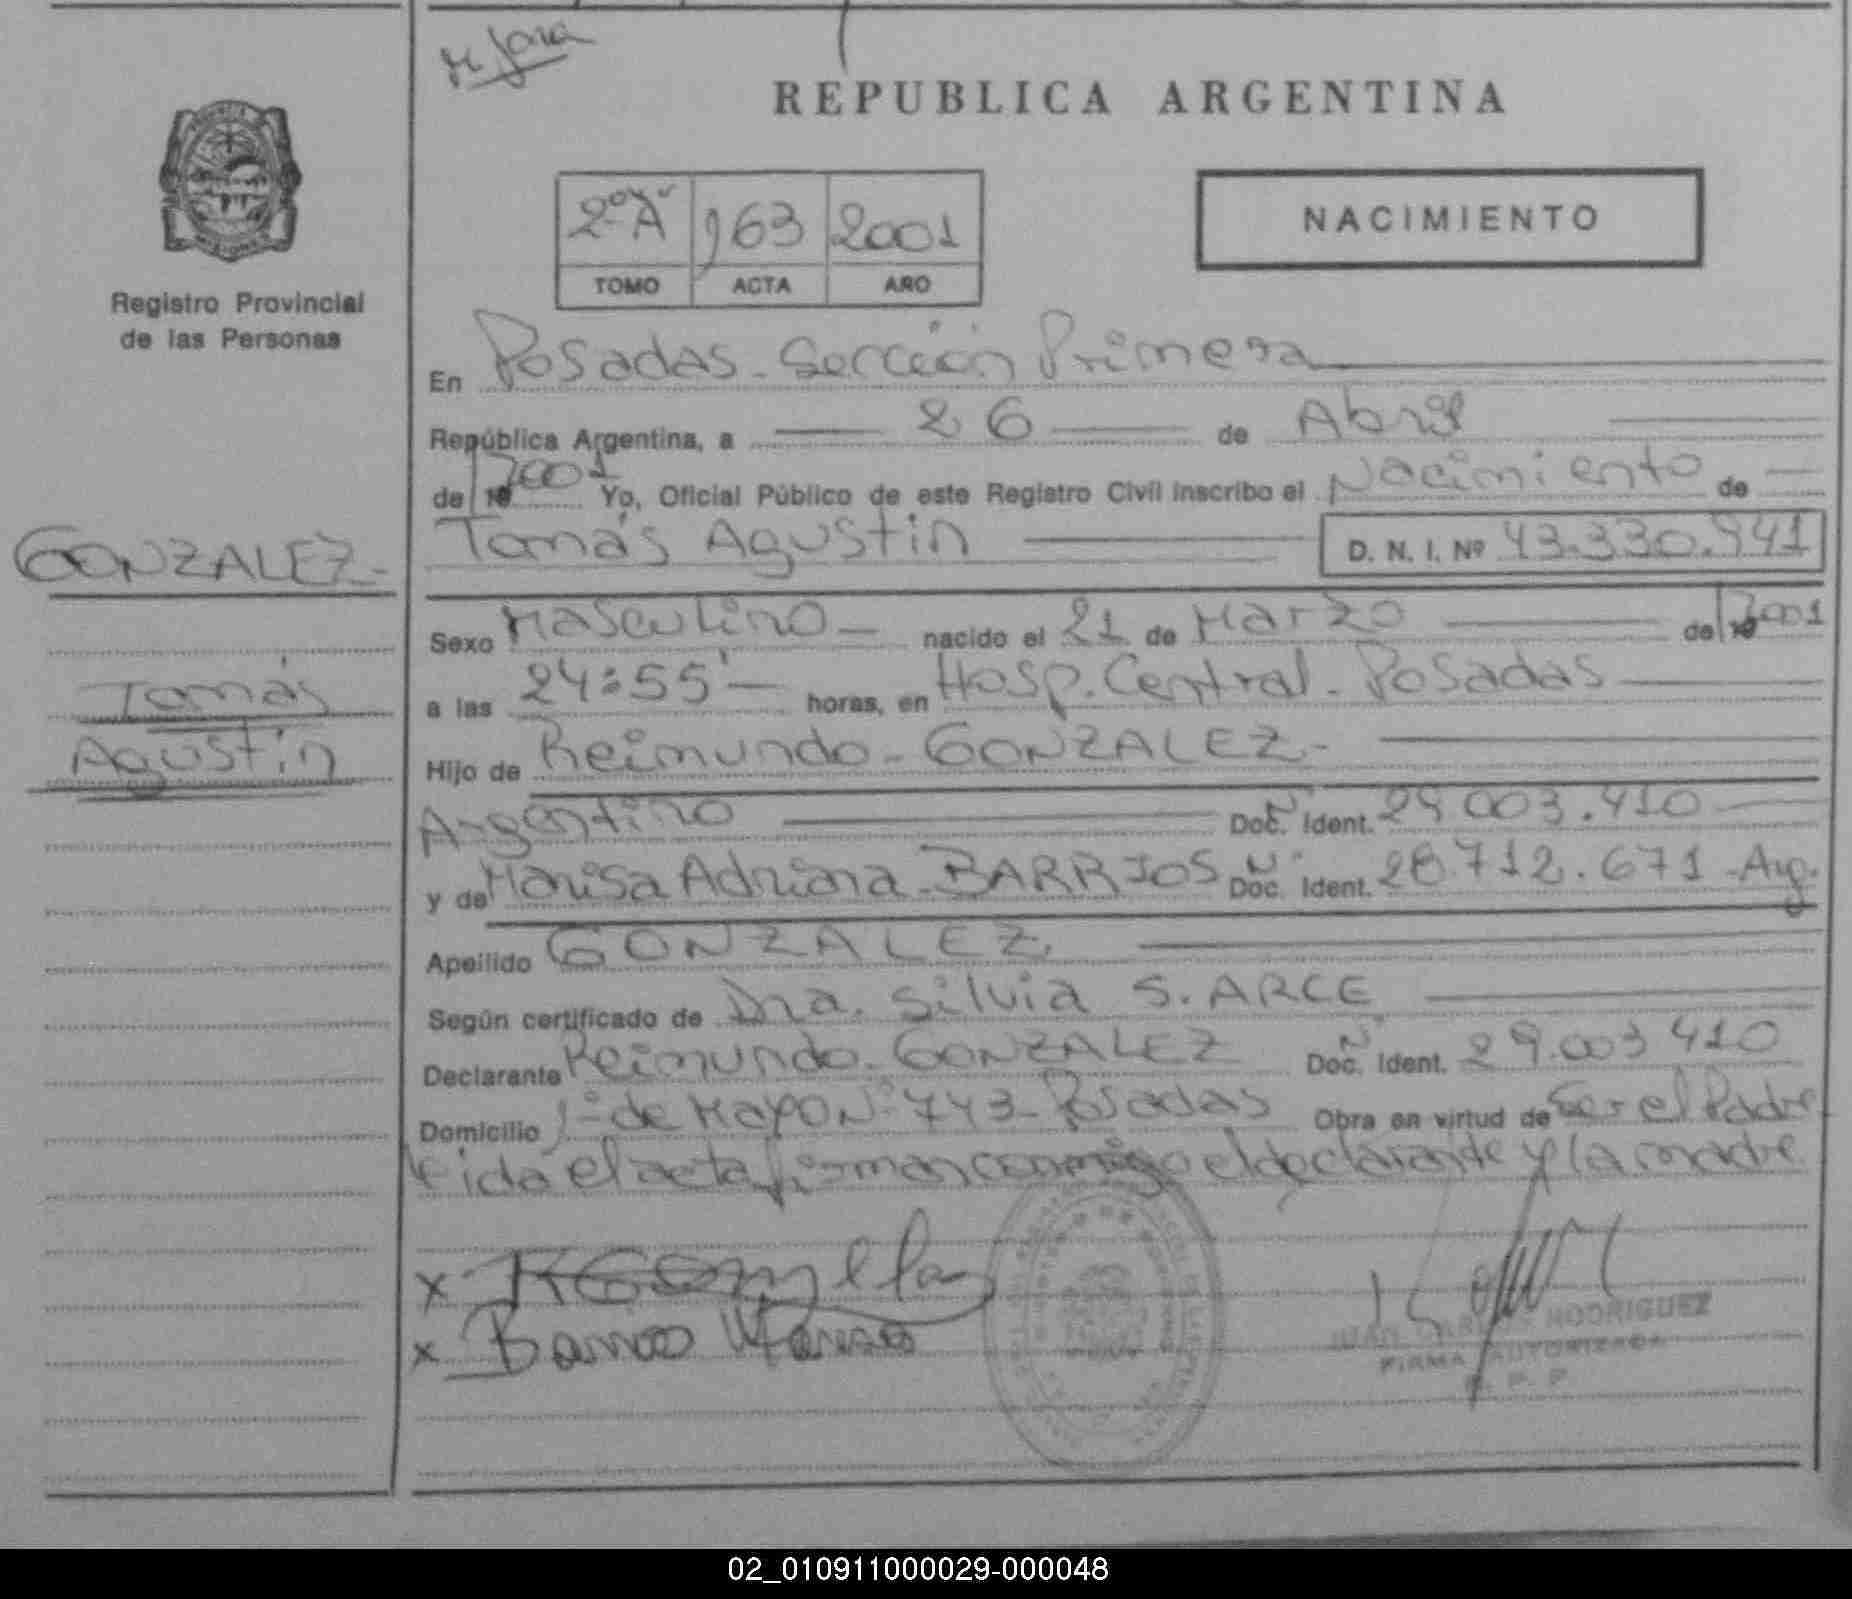 REPUBLICA ARGENTINA
2º A 163 2001
TOMO ACTA AÑO
NACIMIENTO
Registro Provincial
de las Personas
En Posadas - Sección Primera
República Argentina, a 26 de Abril
de 19 2001 Yo, Oficial Público de este Registro Civil inscribo el Nacimiento de
GONZALEZ-
Tomás Agustín D. N. I. Nº 43.330.941
Sexo Masculino nacido el 21 de Marzo de 19 2001
Tomás
a las 24:55' horas, en Hosp. Central - Posadas
Agustín
Hijo de Reimundo - GONZALEZ-
Argentino Doc. Ident. Nº 29.003.410
y de Marisa Adriana - BARRIOS Doc. Ident. Nº 28.712.671 - Arg.
Apellido GONZALEZ.
Según certificado de Dra. Silvia S. ARCE
Declarante Reimundo - GONZALEZ Doc. Ident. Nº 29.003.410
Domicilio 1º de Mayo Nº 743 - Posadas Obra en virtud de Ser el Padre
Leida el acta firman conmigo el declarante y la madre
x
x Barrios Marisa
JUAN CARLOS RODRIGUEZ
FIRMA AUTORIZADA
R. P. P.
02_010911000029-000048